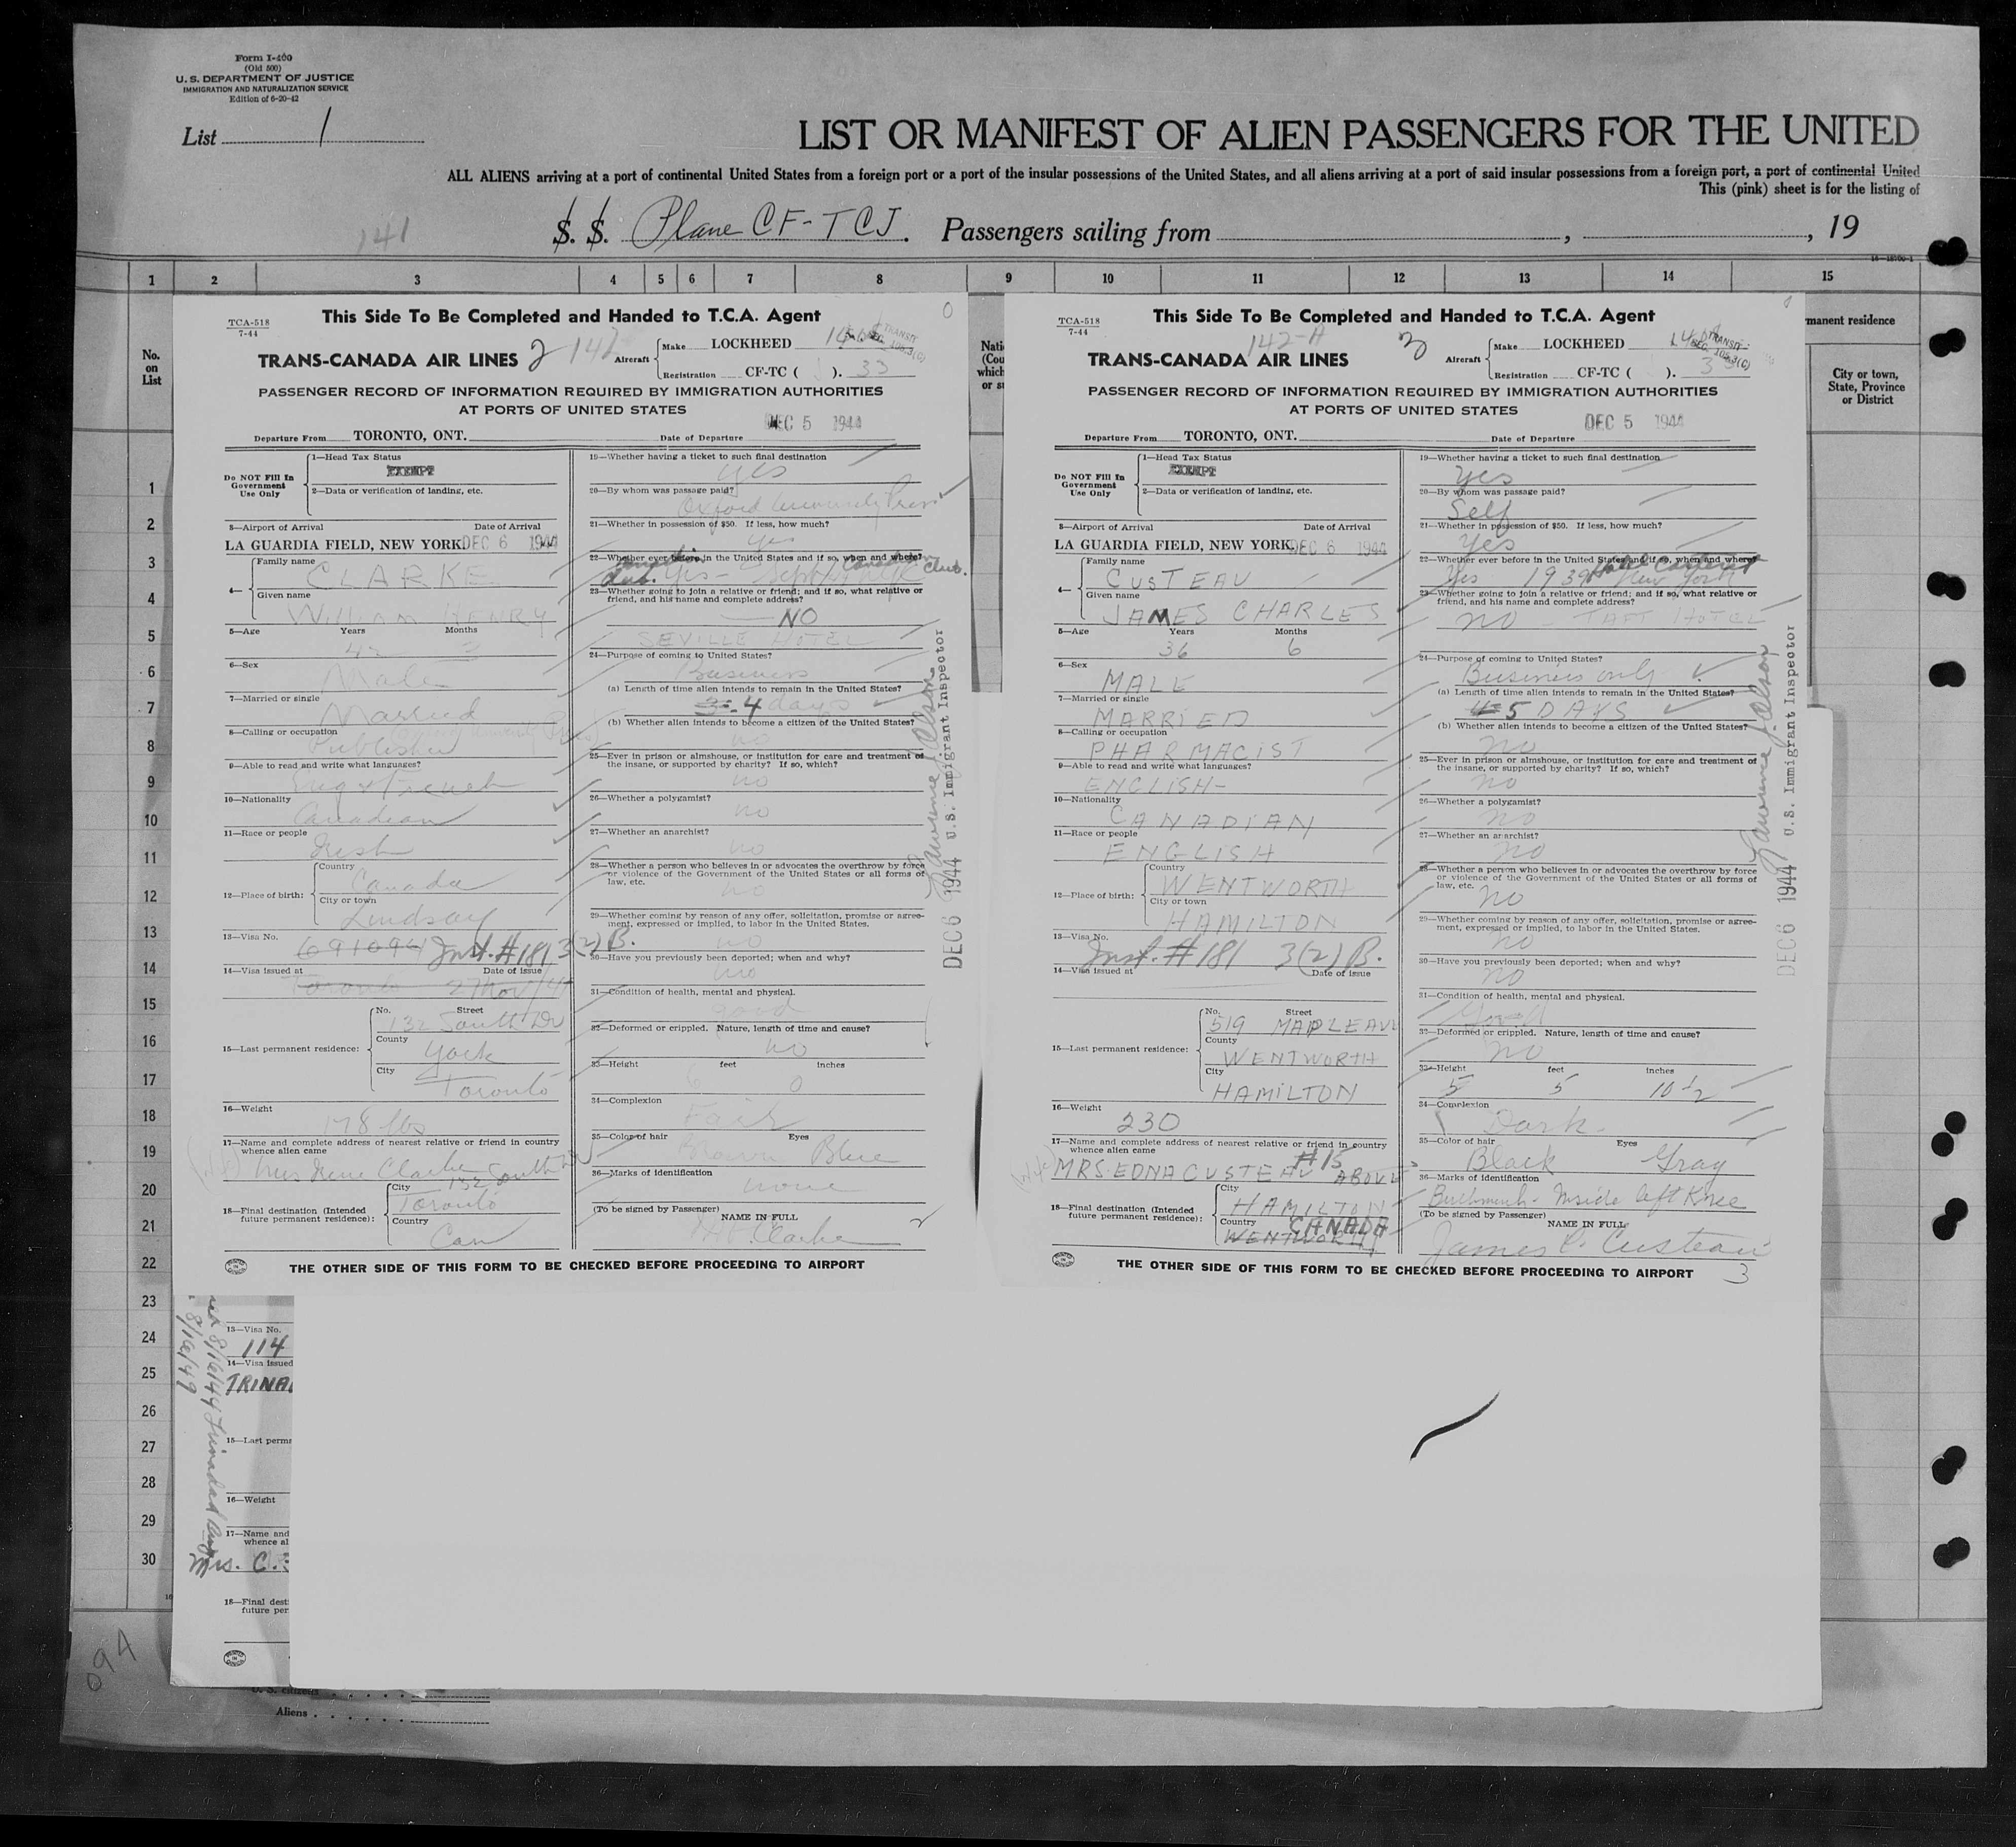 Form I-400
(Old 500)
U. S. DEPARTMENT OF JUSTICE
IMMIGRATION AND NATURALIZATION SERVICE
Edition of 6-20-42
List 1
LIST OR MANIFEST OF ALIEN PASSENGERS FOR THE UNITED
ALL ALIENS arriving at a port of continental United States from a foreign port or a port of the insular possessions of the United States, and all aliens arriving at a port of said insular possessions from a foreign port, a port of continental United
This (pink) sheet is for the listing of
141
S. S. Plane CF-TCJ. Passengers sailing from , , 19
1 2 3 4 5 6 7 8 9 10 11 12 13 14 15
No. on List
manent residence
City or town, State, Province or District
1
2
3
4
5
6
7
8
9
10
11
12
13
14
15
16
17
18
19
20
21
22
23
24
25
26
27
28
29
30
TCA-518
7-44
This Side To Be Completed and Handed to T.C.A. Agent
TRANS-CANADA AIR LINES 2 142
Aircraft
Make LOCKHEED
Registration CF-TC ( ). 33
PASSENGER RECORD OF INFORMATION REQUIRED BY IMMIGRATION AUTHORITIES
AT PORTS OF UNITED STATES
DEC 5 1944
Departure From TORONTO, ONT. Date of Departure
Do NOT Fill In Government Use Only
1—Head Tax Status
EXEMPT
2—Data or verification of landing, etc.
3—Airport of Arrival Date of Arrival
LA GUARDIA FIELD, NEW YORK. DEC 6 1944
4—
Family name
CLARKE
Given name
WILLIAM HENRY
5—Age Years Months
42 3
6—Sex
Male
7—Married or single
Married
8—Calling or occupation
Publisher
9—Able to read and write what languages?
Eng & French
10—Nationality
Canadian
11—Race or people
Irish
12—Place of birth:
Country
Canada
City or town
Lindsay
13—Visa No.
691094 Inst. #181 3(2) B.
14—Visa issued at Date of issue
Toronto 27 Nov/4
15—Last permanent residence:
No. Street
132 South Dr
County
York
City
Toronto
16—Weight
178 lbs
17—Name and complete address of nearest relative or friend in country
whence alien came
Mrs Irene Clarke 132 South Dr
18—Final destination (Intended
future permanent residence):
City
Toronto
Country
Can
19—Whether having a ticket to such final destination
yes
20—By whom was passage paid?
Oxford University Press
21—Whether in possession of $50. If less, how much?
yes
22—Whether ever before in the United States and if so, when and where?
yes - Sept
23—Whether going to join a relative or friend; and if so, what relative or
friend, and his name and complete address?
NO
SEVILLE HOTEL
24—Purpose of coming to United States?
Business
(a) Length of time alien intends to remain in the United States?
3-4 days
(b) Whether alien intends to become a citizen of the United States?
no
25—Ever in prison or almshouse, or institution for care and treatment of
the insane, or supported by charity? If so, which?
no
26—Whether a polygamist?
no
27—Whether an anarchist?
no
28—Whether a person who believes in or advocates the overthrow by force
or violence of the Government of the United States or all forms of
law, etc.
no
29—Whether coming by reason of any offer, solicitation, promise or agree-
ment, expressed or implied, to labor in the United States.
no
30—Have you previously been deported; when and why?
no
31—Condition of health, mental and physical.
good
32—Deformed or crippled. Nature, length of time and cause?
no
33—Height feet inches
6 0
34—Complexion
Fair
35—Color of hair Eyes
Brown Blue
36—Marks of identification
none
(To be signed by Passenger) NAME IN FULL
W H Clarke
THE OTHER SIDE OF THIS FORM TO BE CHECKED BEFORE PROCEEDING TO AIRPORT
DEC 6 1944 U.S. Immigrant Inspector
TCA-518
7-44
This Side To Be Completed and Handed to T.C.A. Agent
142-A
TRANS-CANADA AIR LINES 3
Aircraft
Make LOCKHEED
Registration CF-TC ( ).
PASSENGER RECORD OF INFORMATION REQUIRED BY IMMIGRATION AUTHORITIES
AT PORTS OF UNITED STATES
DEC 5 1944
Departure From TORONTO, ONT. Date of Departure
Do NOT Fill In Government Use Only
1—Head Tax Status
EXEMPT
2—Data or verification of landing, etc.
3—Airport of Arrival Date of Arrival
LA GUARDIA FIELD, NEW YORK. DEC 6 1944
4—
Family name
CUSTEAU
Given name
JAMES CHARLES
5—Age Years Months
36 6
6—Sex
MALE
7—Married or single
MARRIED
8—Calling or occupation
PHARMACIST
9—Able to read and write what languages?
ENGLISH-
10—Nationality
CANADIAN
11—Race or people
ENGLISH
12—Place of birth:
Country
WENTWORTH
City or town
HAMILTON
13—Visa No.
Inst. #181 3(2) B.
14—Visa issued at Date of issue
15—Last permanent residence:
No. Street
519 MAPLE AVE
County
WENTWORTH
City
HAMILTON
16—Weight
230
17—Name and complete address of nearest relative or friend in country
whence alien came
MRS. EDNA CUSTEAU #15 ABOVE
18—Final destination (Intended
future permanent residence):
City
HAMILTON
Country CANADA
WENTWORTH
19—Whether having a ticket to such final destination
yes
20—By whom was passage paid?
Self
21—Whether in possession of $50. If less, how much?
yes
22—Whether ever before in the United States and if so, when and where?
Yes 1939 New York
23—Whether going to join a relative or friend; and if so, what relative or
friend, and his name and complete address?
no - TAFT HOTEL
24—Purpose of coming to United States?
Business only
(a) Length of time alien intends to remain in the United States?
5 DAYS
(b) Whether alien intends to become a citizen of the United States?
no
25—Ever in prison or almshouse, or institution for care and treatment of
the insane, or supported by charity? If so, which?
no
26—Whether a polygamist?
no
27—Whether an anarchist?
no
28—Whether a person who believes in or advocates the overthrow by force
or violence of the Government of the United States or all forms of
law, etc.
no
29—Whether coming by reason of any offer, solicitation, promise or agree-
ment, expressed or implied, to labor in the United States.
no
30—Have you previously been deported; when and why?
no
31—Condition of health, mental and physical.
Good
32—Deformed or crippled. Nature, length of time and cause?
no
33—Height feet inches
5 5 10 1/2
34—Complexion
Dark
35—Color of hair Eyes
Black Gray
36—Marks of identification
Birthmark - Inside left Knee
(To be signed by Passenger) NAME IN FULL
James C. Custeau
THE OTHER SIDE OF THIS FORM TO BE CHECKED BEFORE PROCEEDING TO AIRPORT
3
DEC 6 1944 U.S. Immigrant Inspector
13—Visa No.
114
14—Visa issued
TRINA
15—Last perma
16—Weight
17—Name and
whence al
Mrs. C.
18—Final dest
future per
8/16/44 Trinidad
8/16/49
094
U. S. citizens
Aliens